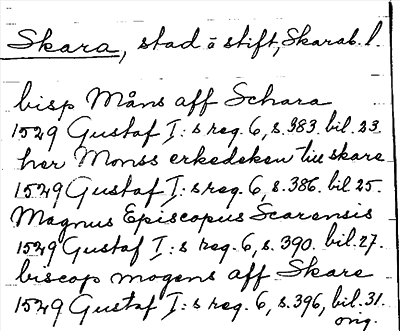 Skara, stad o stift, Skarab. l.
bisp Måns aff Schara
1529 Gustaf I:s reg. 6, s. 383. bil. 23.
her Monss erkedeken till skare
1529 Gustaf I:s reg. 6, s. 386. bil 25.
Magnus Episcopus Scarensis
1529 Gustaf I:s reg. 6, s. 390. bil. 27.
biscop mogens aff Skare
1529 Gustaf I:s reg. 6, s. 396, bil. 31.
orig.